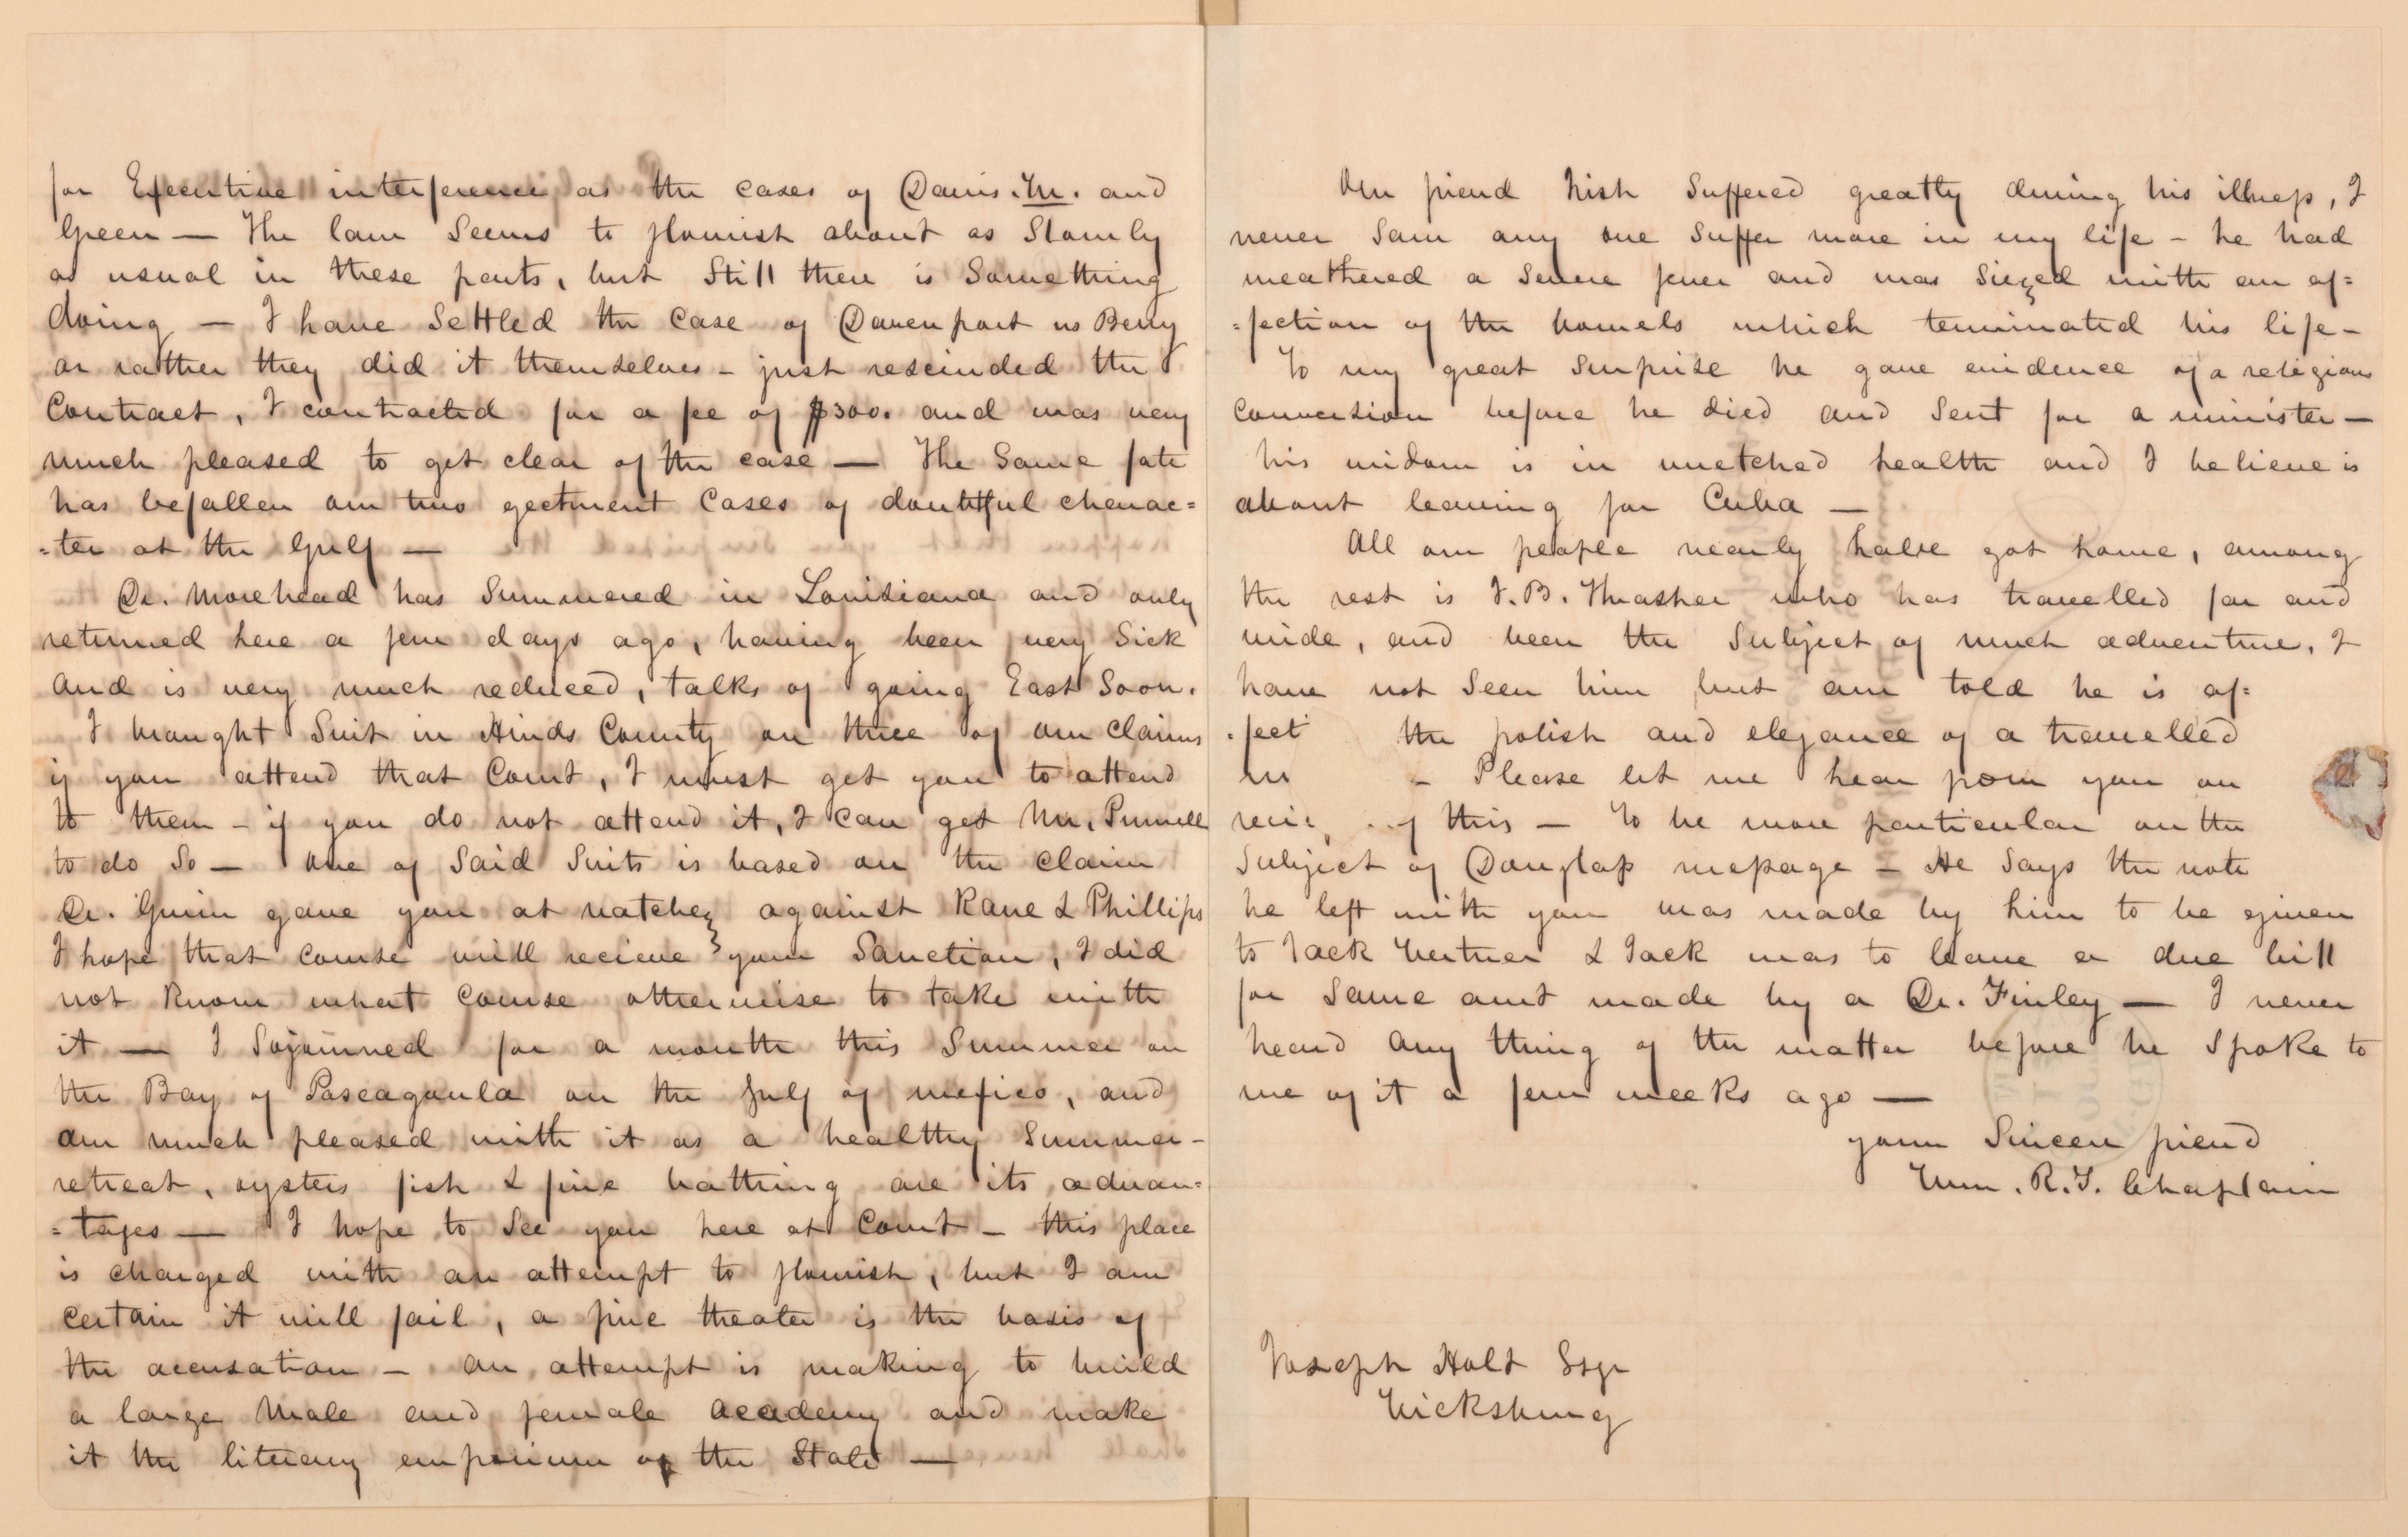 for Executive interference as the cases of Davis. and
Green — The law Seems to flourish about as Slowly
as usual in these parts, but Still there is Something
doing — I have Settled the Case of Davenport vs Berry
or rather they did it themselves - just rescinded the
Contract, I contracted for a fee of $300. and was very
much pleased to get clear of the case — The Same fate
has befallen our two ejectment Cases of doubtful charac=
=ter at the Gulf —
Dr. Morehead has Summered in Louisiana and only
returned here a few days ago, having been very Sick
and is very much reduced, talks of going East Soon.
I brought Suit in Hinds County on three of our Claims
if you attend that Court, I must get you to attend
to them - if you do not attend it, I can get Mr. Purnell
to do So — One of Said Suits is based on the claim
Dr. Gwin gave you at natchez against Kane & Phillips
I hope that course will recieve your Sanction, I did
not Know what course otherwise to take with
it — I Sojourned for a month this Summer on
the Bay of Pascagoula on the gulf of mexico, and
am much pleased with it as a healthy Summer-
retreat, oysters fish & fine bathing are its advan=
=tages — I hope to See you here at Court — this place
is charged with an attempt to flourish, but I am
certain it will fail, a fine theater is the basis of
the accusation — An attempt is making to build
a large Male and female academy and make
it the literary emporium of the State —
Our friend Suffered greatly during his illness, I
never Saw any one Suffer more in my life - he had
weathered a Severe fever and was Siezed with an af=
=fection of the bowels which terminated his life -
To my great Surprise he gave evidence of a religious
Conversion before he died and Sent for a minister —
his widow is in wretched health and I believe is
about leaving for Cuba —
All our people nearly have got home, among
the rest is J. B. Thrasher who has travelled far and
wide, and been the Subject of much adventure, I
have not Seen him but am told he is af=
=fect the polish and elegance of a travelled
- Please let me hear from you on
this — To be more particular on the
Subject of message — He Says the note
he left with you was made by him to be given
to Jack Vertner & Jack was to leave a due bill
for Same amt made by a Dr. Finley — I never
heard any thing of the matter before he Spoke to
me of it a few weeks ago —
your Sincere friend
Wm. R. T. Chaplain
Joseph Holt Esqr
Vicksburg